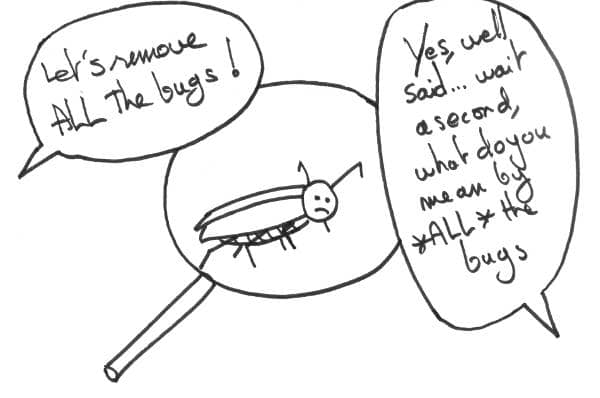 Let's remove
ALL The bugs!
Yes, well
said... wait
a second,
what do you
mean by
*ALL* the
bugs